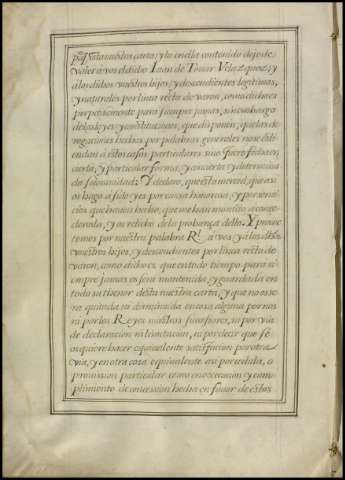 para q̃ valga nrã carta, y lo en ella contenido dejo de
valer a vos el dicho Iuan de Touar Velazquez, y
a los dichos vuestros hijos, y descendientes legitimos,
y naturales por linea recta de varon, como dicho es
perpetuamente para siempre jamas, sin embargo
de las leyes y constituciones, que disponen, que las de
rogaciones hechas por palabras generales no se es
tiendan a estos casos particulares sino fuere fecha en
carta, y particular forma, y con cierta y determinada
solemnidad: Y declaro, que esta merced, que a v
os hago a sido y es por causa honorosa, y por servi
cios que haueis hecho, que me han mouido a conce
deroslo, y os reliebo de la probança dellos. Y prome
temos por nuestra palabra Rl. a vos y a los dhos
vuestros hijos, y descendientes por linea recta de
varon, como dicho es, que en todo tiempo para si
empre jamas os sera mantenida y guardada en
todo su thenor desta nuestra carta, y que no os se
ra quitada ni disminuida en cosa alguna por nos
ni por los Reyes nuestros sucesores, ni por via
de declaracion ni limitacion, ni por decir que se
os quiere hacer equiualente satisfacion por otra
via, y en otra cosa equiualente ora por cedula, o
prouision particular como en reuocacion y cum
plimiento de concession hecha en fauor de estos